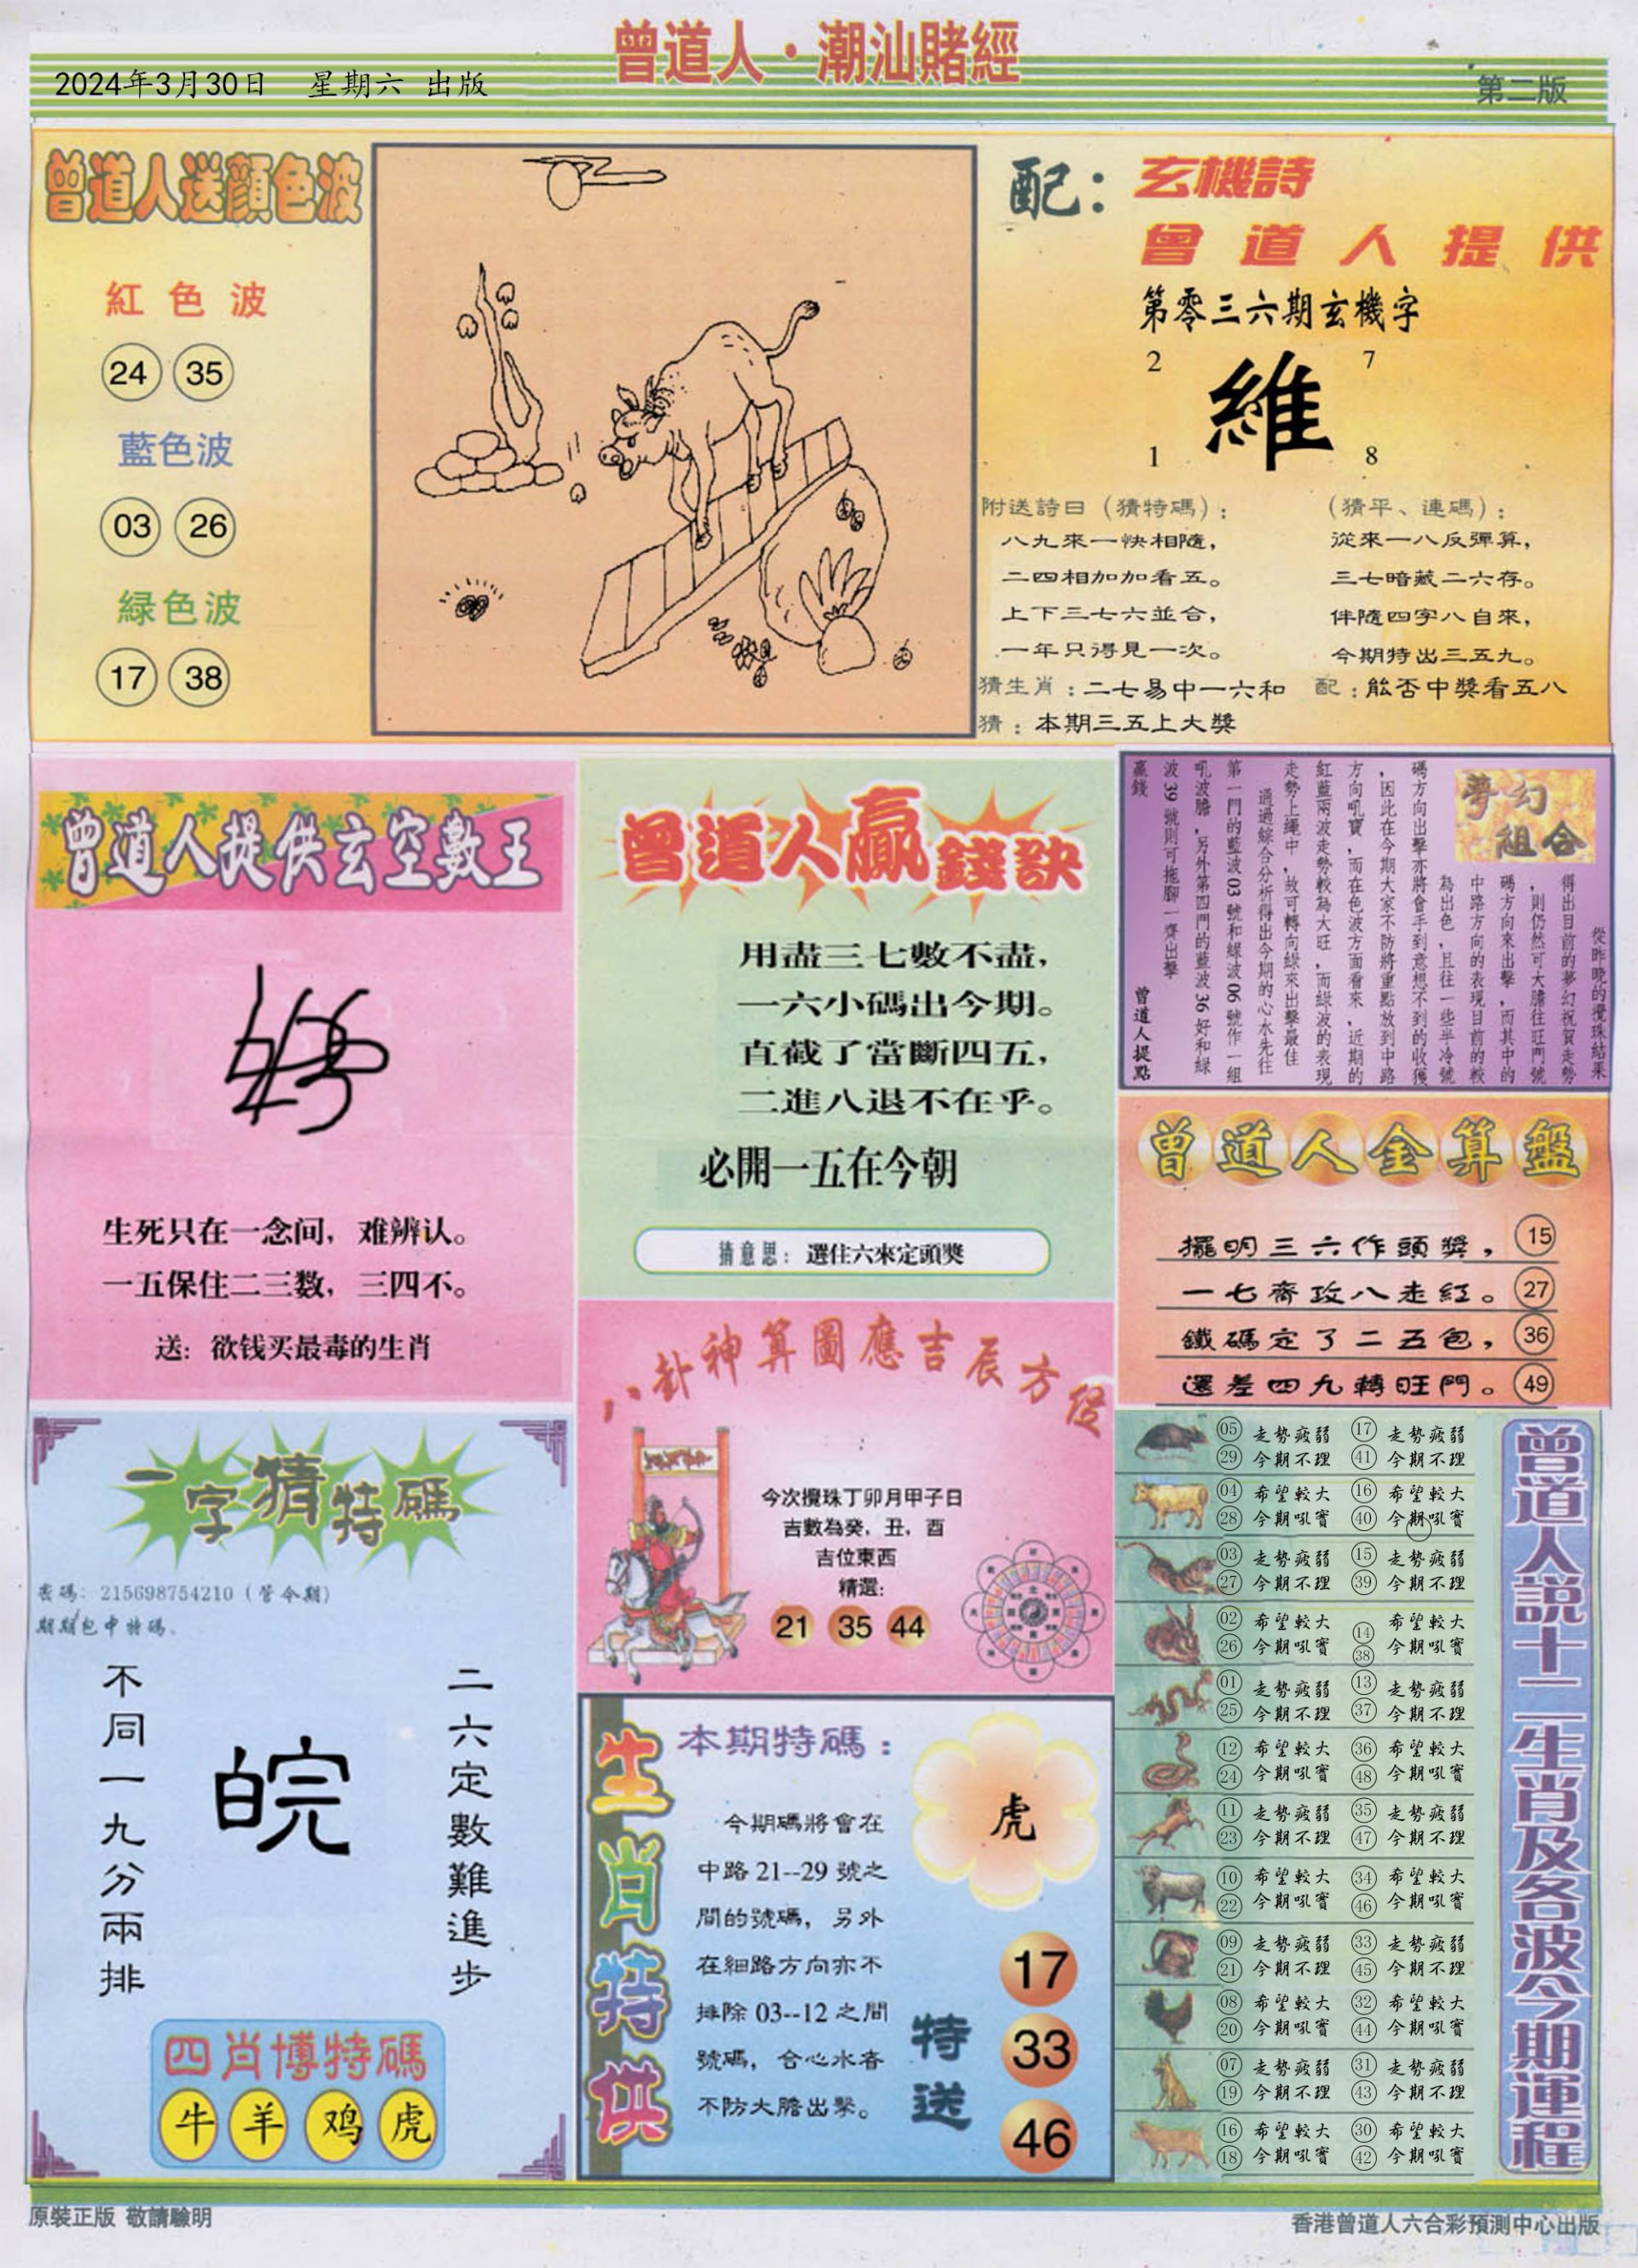 曾道人·潮汕賭經
2024年3月30日 星期六 出版
第二版
曾道人送顔色波
紅色波
24 35
藍色波
03 26
緑色波
17 38
配：玄機詩
曾道人提供
第零三六期玄機字
2 7
維
1 8
附送詩曰（猜特碼）：
八九來一快相隨，
二四相加加看五。
上下三七六並合，
一年只得見一次。
（猜平、連碼）：
從來一八反彈算，
三七暗藏二六存。
伴隨四字八自來，
今期特出三五九。
猜生肖：二七易中一六和 配：能否中獎看五八
猜：本期三五上大獎
曾道人提供玄空數王
生死只在一念间，难辨认。
一五保住二三数，三四不。
送：欲钱买最毒的生肖
曾道人贏錢訣
用盡三七數不盡，
一六小碼出今期。
直截了當斷四五，
二進八退不在乎。
必開一五在今朝
猜意思：選住六來定頭獎
夢幻組合
從昨晚的攪珠結果
得出目前的夢幻祝賀走勢
，則仍然可大膽往旺門號
碼方向來出擊，而其中的
中路方向的表現目前的較
為出色，且往一些半冷號
碼方向出擊亦將會手到意想不到的收獲
，因此在今期大家不防將重點放到中路
方向吼寶，而在色波方面看來，近期的
紅藍兩波走勢較為大旺，而綠波的表現
走勢上繩中，故可轉向綠來出擊最佳
通過綜合分析得出今期的心水先往
第一門的藍波03號和綠波06號作一組
吼波膽，另外第四門的藍波36好和綠
波39號則可拖腳一齊出擊
贏錢
曾道人提點
曾道人金算盤
擺明三六作頭獎， 15
一七齊攻八走紅。 27
鐵碼定了二五包， 36
還差四九轉旺門。 49
八卦神算圖應吉辰方位
今次攪珠丁卯月甲子日
吉數為癸，丑，酉
吉位東西
精選：
21 35 44
一字猜特碼
密碼：215698754210（管今期）
期期包中特碼。
不同一九分兩排
皖
二六定數難進步
四肖博特碼
牛 羊 鸡 虎
生肖特供
本期特碼：
虎
今期碼將會在
中路21--29號之
間的號碼，另外
在細路方向亦不
排除03--12之間
號碼，合心水者
不防大膽出擊。
特送
17
33
46
曾道人說十二生肖及各波今期運程
05 走勢疲弱 17 走勢疲弱
29 今期不理 41 今期不理
04 希望較大 16 希望較大
28 今期吼寶 40 今期吼寶
03 走勢疲弱 15 走勢疲弱
27 今期不理 39 今期不理
02 希望較大 14 希望較大
26 今期吼寶 38 今期吼寶
01 走勢疲弱 13 走勢疲弱
25 今期不理 37 今期不理
12 希望較大 36 希望較大
24 今期吼寶 48 今期吼寶
11 走勢疲弱 35 走勢疲弱
23 今期不理 47 今期不理
10 希望較大 34 希望較大
22 今期吼寶 46 今期吼寶
09 走勢疲弱 33 走勢疲弱
21 今期不理 45 今期不理
08 希望較大 32 希望較大
20 今期吼寶 44 今期吼寶
07 走勢疲弱 31 走勢疲弱
19 今期不理 43 今期不理
16 希望較大 30 希望較大
18 今期吼寶 42 今期吼寶
原裝正版 敬請驗明
香港曾道人六合彩預測中心出版